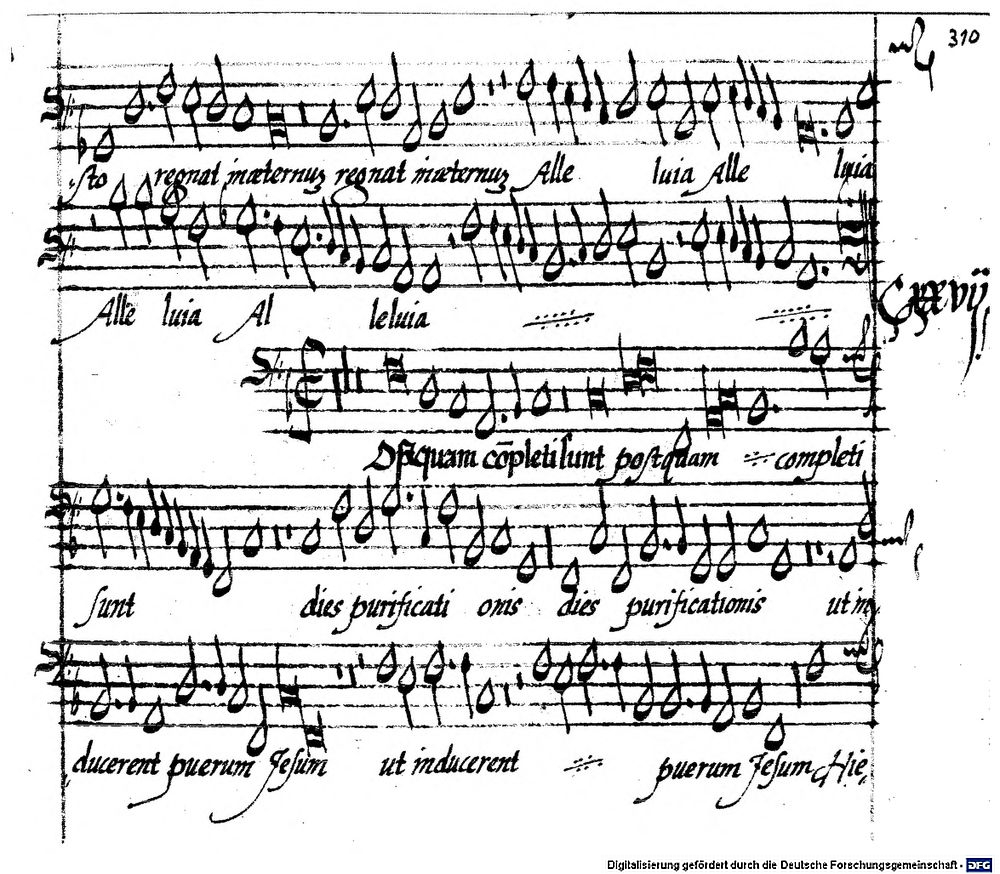 310
sto regnat inæternuȝ regnat inæternuȝ Alle luia Alle luia
Alle luia Al leluia
Cxxvij
Ostquam cōpleti sunt postquam completi
sunt dies purificati onis dies purificationis ut in
ducerent puerum Jesum ut inducerent puerum Jesum Hie
Digitalisierung gefördert durch die Deutsche Forschungsgemeinschaft - DFG